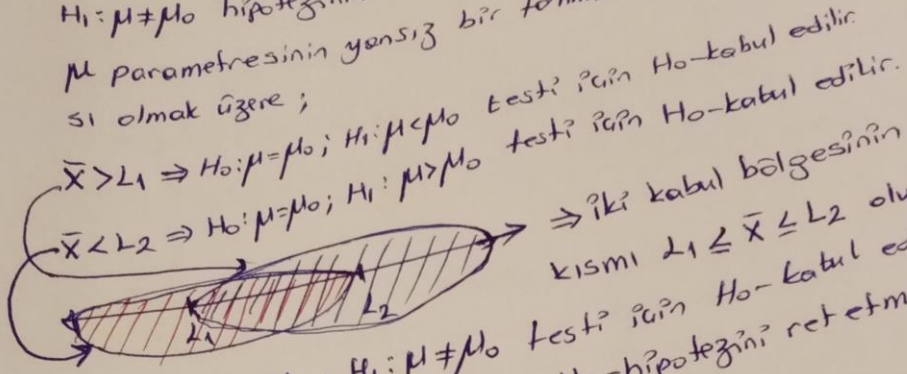 H₁: μ≠μ₀
μ parametresinin yansız bir
sı olmak üzere;
x̄>L₁ ⇒ H₀:μ=μ₀; H₁:μ<μ₀ testi için H₀-kabul edilir.
x̄<L₂ ⇒ H₀:μ=μ₀; H₁: μ>μ₀ testi için H₀-kabul edilir.
⇒ iki kabul bölgesinin
L₁ L₂
kısmı L₁ ≤ x̄ ≤ L₂
H₁: μ≠μ₀ testi için H₀-kabul
hipotezini